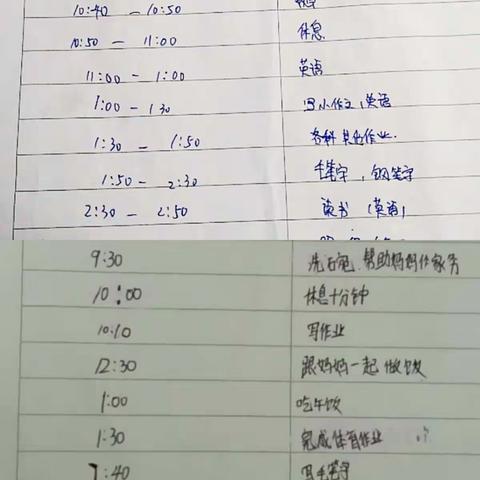 10:40 — 10:50
10:50 — 11:00 休息
11:00 — 1:00 英语
1:00 — 1 30 写小作文,英语
1:30 — 1:50 各科其他作业.
1:50 — 2:30 毛笔字,钢笔字
2:30 — 2:50 读书(英语)
9:30 洗石宛.帮助妈妈作家务
10:00 休息十分钟
10:10 写作业
12:30 跟妈妈一起做饭
1:00 吃午饭
1:30 完成体育作业
1:40 写毛笔字